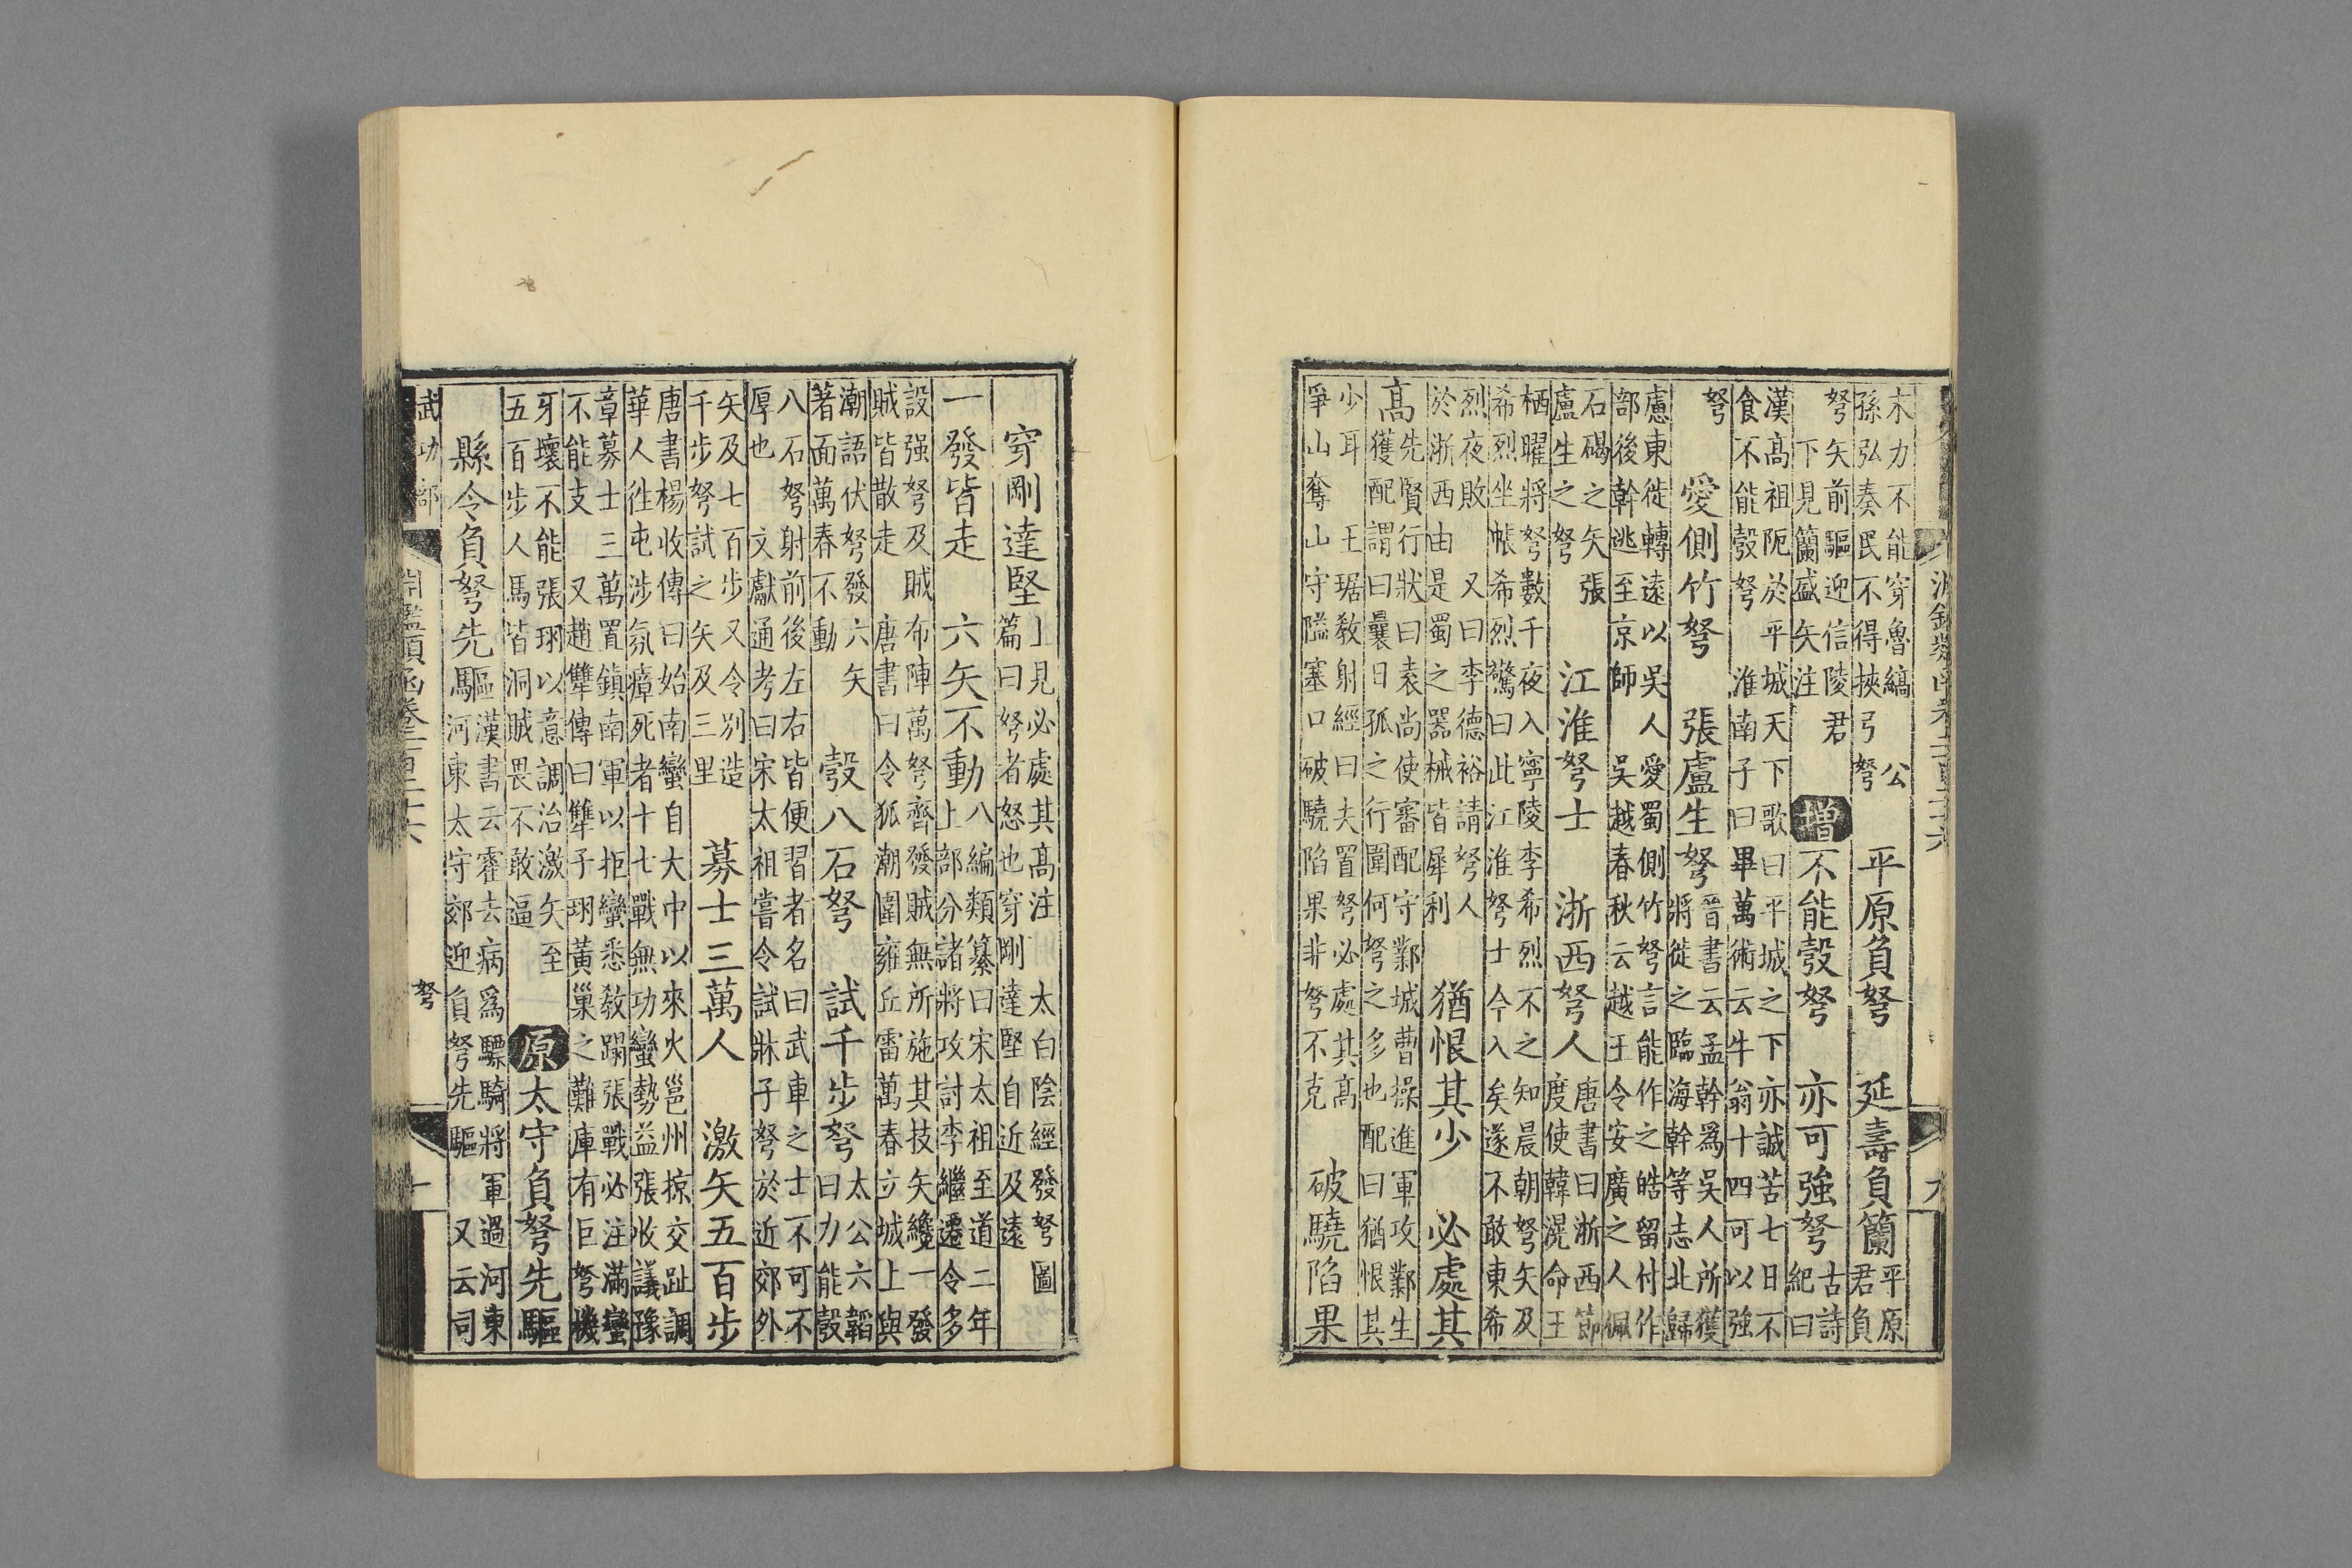 淵鑑類函卷二百二十六 九
末力不能穿魯縞 公
孫弘奏民不得挾弓弩
平原負弩 延壽負籣
平原
君負
弩矢前驅迎信陵君
下見籣盛矢注
增不能彀弩 亦可強弩
古詩
紀曰
漢高祖阨於平城天下歌曰平城之下亦誠苦七日不
食不能彀弩 淮南子曰畢萬術云牛翁十四可以強
弩
愛側竹弩 張盧生弩
晉書云孟幹爲吳人所獲
將徙之臨海幹等志北歸
慮東徙轉遠以吳人愛蜀側竹弩言能作之皓留付作
部後幹逃至京師 吳越春秋云越王令安廣之人佩
石碣之矢張
盧生之弩
江淮弩士 浙西弩人
唐書曰浙西節
度使韓滉命王
栖曜將弩數千夜入寧陵李希烈不之知晨朝弩矢及
希烈坐帳希烈驚曰此江淮弩士今入矣遂不敢東希
烈夜敗 又曰李德裕請弩人
於浙西由是蜀之器械皆犀利
猶恨其少 必處其
高
先賢行狀曰袁尚使審配守鄴城曹操進軍攻鄴生
獲配謂曰曩日孤之行圍何弩之多也配曰猶恨其
少耳 王琚敎射經曰夫置弩必處其高
爭山奪山守隘塞口破驍陷果非弩不克
破驍陷果
穿剛達堅
上見必處其高注 太白陰經發弩圖
篇曰弩者怒也穿剛達堅自近及遠
一發皆走 六矢不動
八編類纂曰宋太祖至道二年
上部分諸將攻討李繼遷令多
設强弩及賊布陣萬弩齊發賊無所施其技矢纔一發
賊皆散走 唐書曰令狐潮圍雍丘雷萬春立城上與
潮語伏弩發六矢
著面萬春不動
彀八石弩 試千步弩
太公六韜
曰力能彀
八石弩射前後左右皆便習者名曰武車之士不可不
厚也 文獻通考曰宋太祖嘗令試牀子弩於近郊外
矢及七百步又令別造
千步弩試之矢及三里
募士三萬人 激矢五百步
唐書楊收傳曰始南蠻自大中以來火邕州掠交趾調
華人徃屯涉氛瘴死者十七戰無功蠻勢益張收議豫
章募士三萬置鎮南軍以拒蠻悉敎蹋張戰必注滿蠻
不能支 又趙犨傳曰犨子珝黃巢之難庫有巨弩機
牙壞不能張珝以意調治激矢至
五百步人馬皆洞賊畏不敢逼
原太守負弩先驅
縣令負弩先驅
漢書云霍去病爲驃騎將軍過河東
河東太守郊迎負弩先驅 又云司
武功部 淵鑑類函卷二百二十六 弩